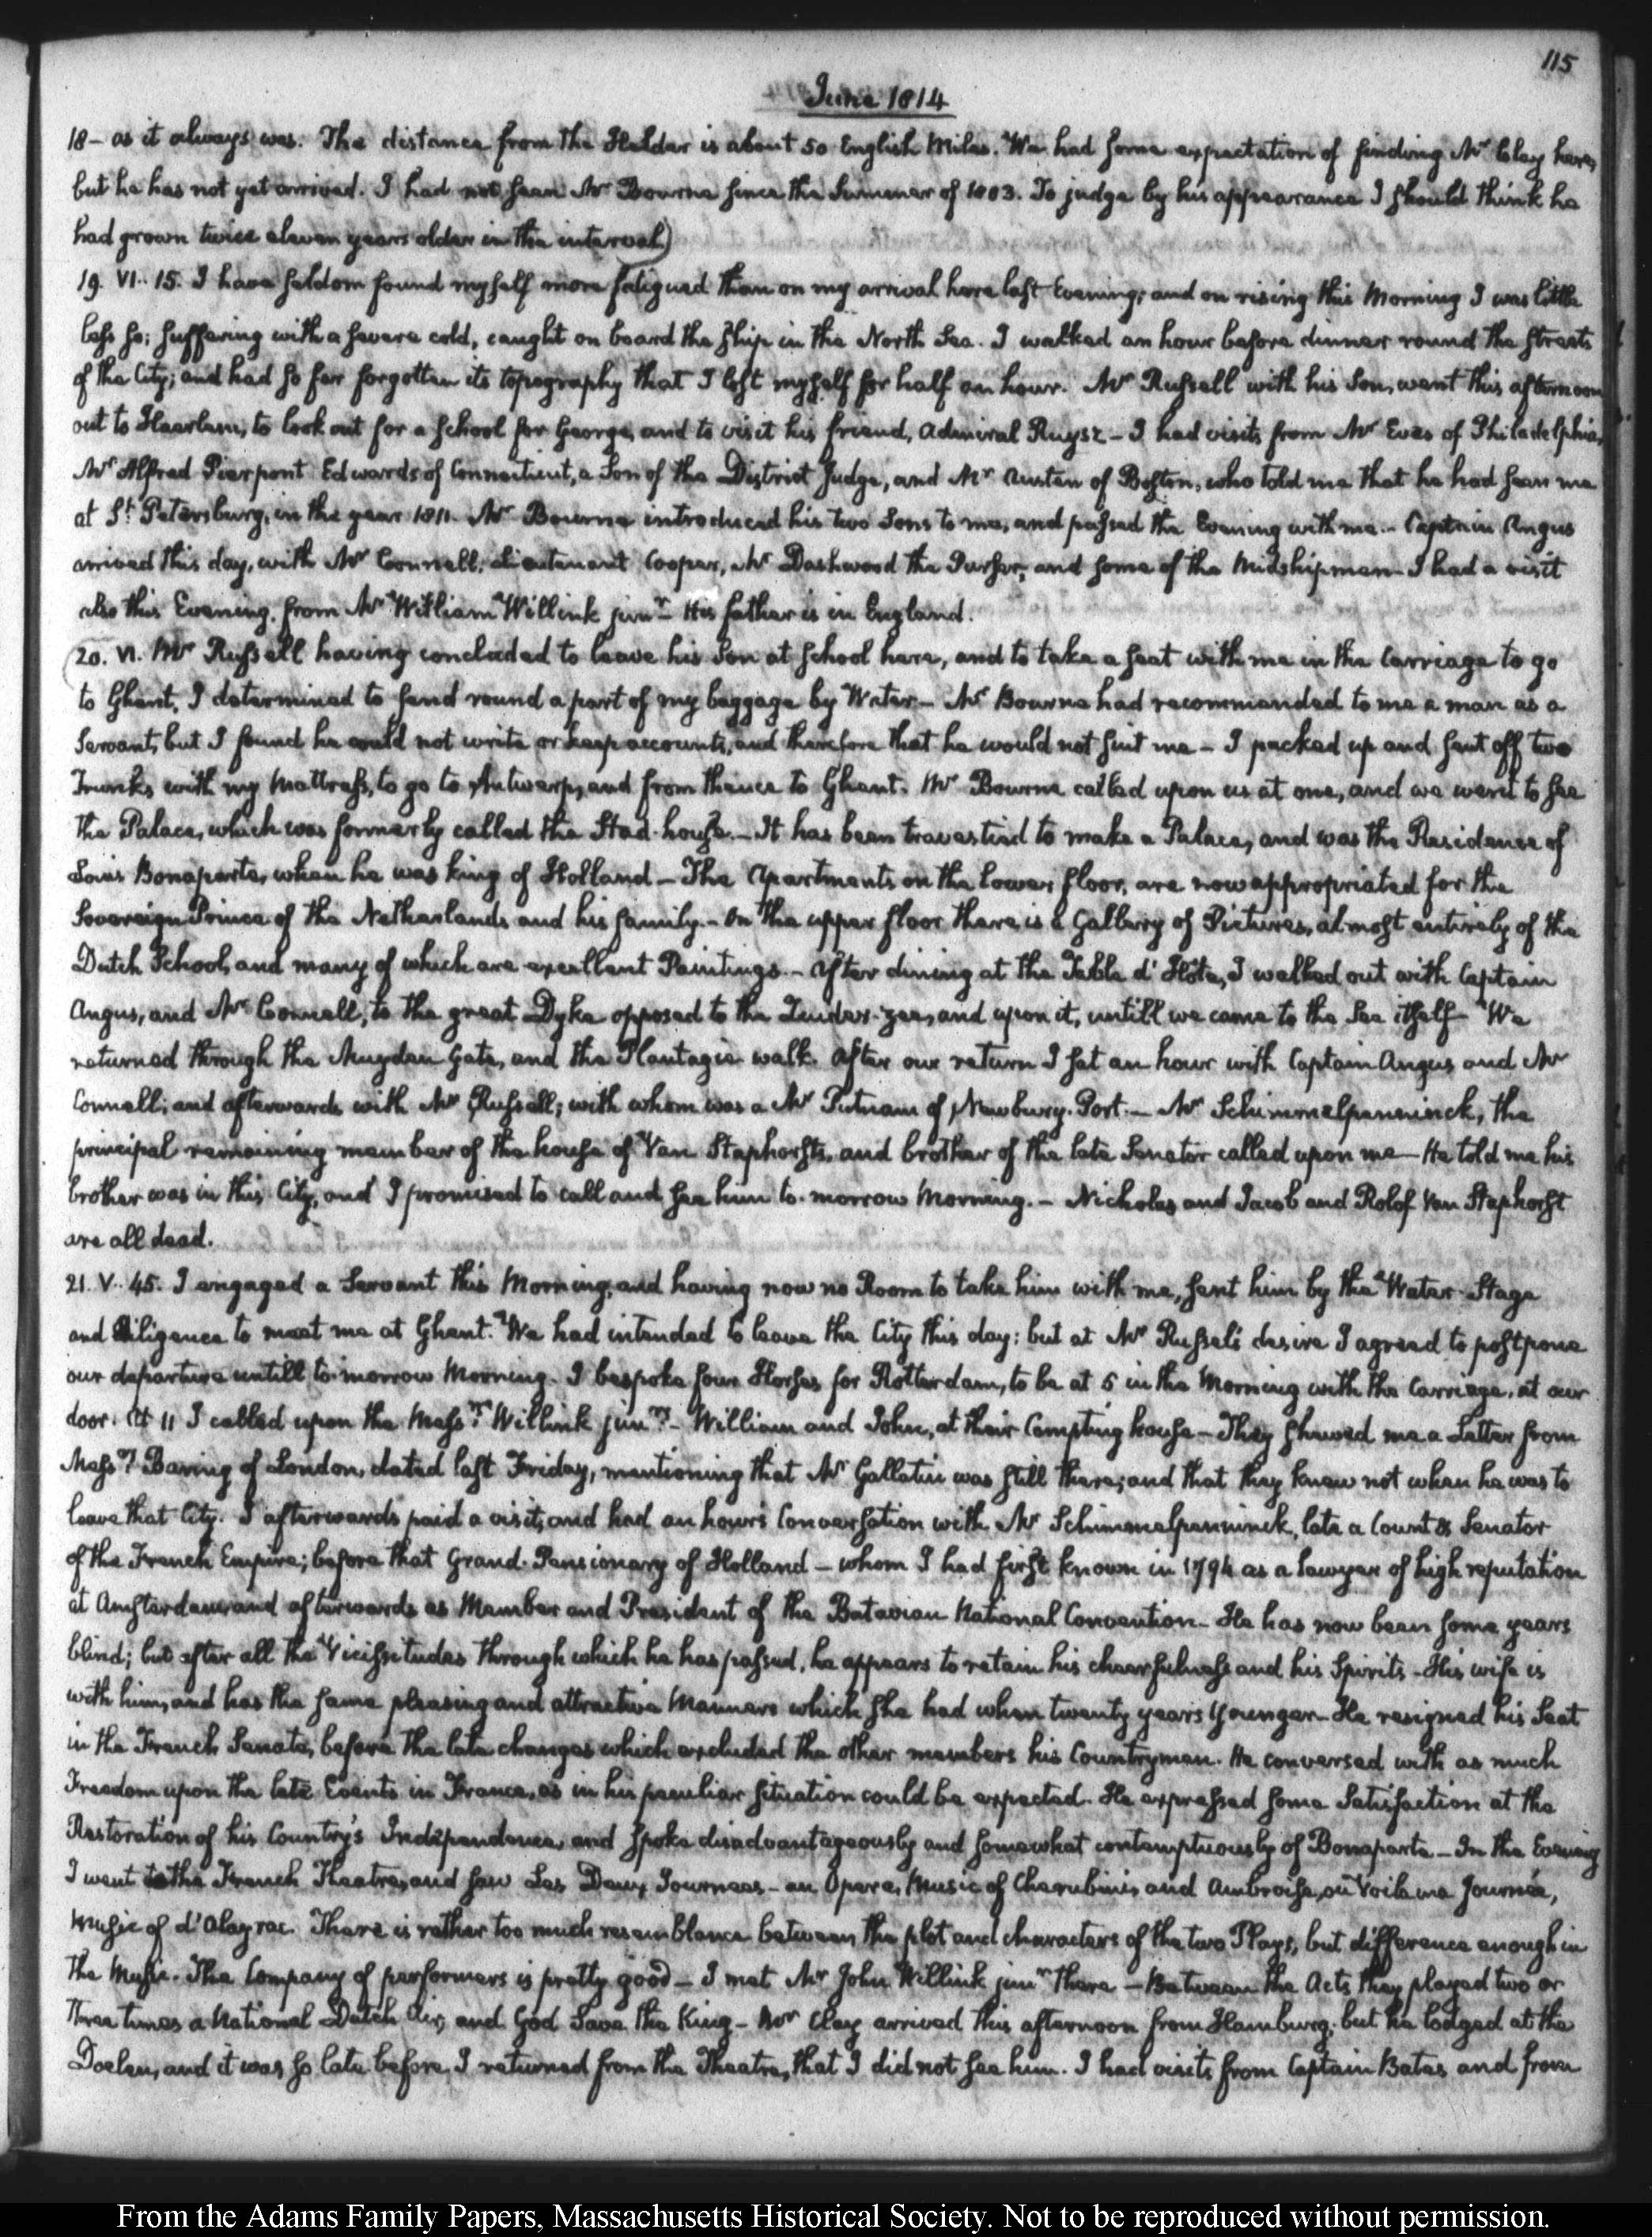 115
June 1814
18– as it always was. The distance from the Helder is about 50 English Miles. We had some expectation of finding Mr Clay here,
but he has not yet arrived. I had not seen Mr Bourne since the Summer of 1803. To judge by his appearance I should think he
had grown twice eleven years older in the interval)
19. VI.. 15. I have seldom found myself more fatigued than on my arrival here last Evening; and on rising this Morning I was little
less so; suffering with a severe cold, caught on board the ship in the North Sea. I walked an hour before dinner round the streets
of the City; and had so far forgotten its topography that I lost myself for half an hour. Mr Russell with his Son, went this afternoon
out to Haarlem, to look out for a school for George, and to visit his friend, Admiral Ruysz– I had visits from Mr Eves of Philadelphia,
Mr Alfred Pierpont Edwards of Connecticut, a Son of the District Judge, and Mr Austen of Boston, who told me that he had seen me
at St Petersburg, in the year 1811. Mr Bourne introduced his two Sons to me, and passed the Evening with me.– Captain Angus
arrived this day, with Mr Connell, Lieutenant Cooper, Mr Dashwood the Purser, and some of the Midshipmen– I had a visit
also this Evening, from Mr William Willink junr– His father is in England.
20. VI. Mr Russell having concluded to leave his Son at school here, and to take a seat with me in the Carriage to go
to Ghent, I determined to send round a part of my baggage by Water– Mr Bourne had recommended to me a man as a
Servant, but I found he could not write or keep accounts, and therefore that he would not suit me– I packed up and sent off two
Trunks with my Mattrass, to go to Antwerp, and from thence to Ghent. Mr Bourne called upon us at one, and we went to see
the Palace, which was formerly called the Stad-house.– It has been travestied to make a Palace, and was the Residence of
Louis Bonaparte, when he was king of Holland– The Apartments on the lower floor, are now appropriated for the
Sovereign Prince of the Netherlands and his family.– On the upper floor there is a Gallery of Pictures, almost entirely of the
Dutch School, and many of which are excellent Paintings.– After dining at the Table d'Hôte, I walked out with Captain
Angus, and Mr Connell, to the great Dyke opposed to the Zuider-zee, and upon it, untill we came to the Sea itself– We
returned through the Muyden Gate, and the Plantagie walk. After our return I sat an hour with Captain Angus and Mr
Connell; and afterwards with Mr Russell; with whom was a Mr Putnam of Newbury-Port.– Mr Schimmelpenninck, the
principal remaining member of the house of Van Staphorsts, and brother of the late Senator called upon me– He told me his
brother was in this City, and I promised to call and see him to-morrow Morning.– Nicholas and Jacob and Rolof Van Staphorst
are all dead.
21. V.. 45. I engaged a Servant this Morning, and having now no Room to take him with me, sent him by the Water-Stage
and Diligence to meet me at Ghent. We had intended to leave the City this day: but at Mr Russell's desire I agreed to postpone
our departure untill to-morrow Morning. I bespoke four Horses for Rotterdam, to be at 5 in the Morning with the Carriage, at our
door. At 11 I called upon the Messrs Willink junrs– William and John, at their Compting house– They shewed me a Letter from
Messrs Baring of London, dated last Friday, mentioning that Mr Gallatin was still there; and that they knew not when he was to
leave that City. I afterwards paid a visit, and had an hour's Conversation with Mr Schimmelpenninck, late a Count & Senator
of the French Empire; before that Grand-Pensionary of Holland– whom I had first known in 1794 as a lawyer of high reputation
at Amsterdam, and afterwards as Member and President of the Batavian National Convention– He has now been some years
blind; but after all the Vicissitudes through which he has passed, he appears to retain his chearfulness and his Spirits– His wife is
with him, and has the same pleasing and attractive Manners which she had when twenty years younger– He resigned his Seat
in the French Senate, before the late changes which excluded the other members his Countrymen. He conversed with as much
Freedom upon the late Events in France, as in his peculiar situation could be expected. He expressed some Satisfaction at the
Restoration of his Country's Independence, and spoke disadvantageously and somewhat contemptuously of Bonaparte– In the Evening
I went to the French Theatre, and saw Les Deux Journees– an Opera, Music of Cherubini, and Ambroise, ou Voila ma Journée,
Music of d'Alayrac. There is rather too much resemblance between the plot and characters of the two Plays, but difference enough in
the Music. The Company of performers is pretty good– I met Mr John Willink junr there– Between the Acts they played two or
three times a National Dutch Air, and God Save the King– Mr Clay arrived this afternoon from Hamburg; but he lodged at the
Doelen, and it was so late before I returned from the Theatre, that I did not see him. I had visits from Captain Bates and from
From the Adams Family Papers, Massachusetts Historical Society. Not to be reproduced without permission.